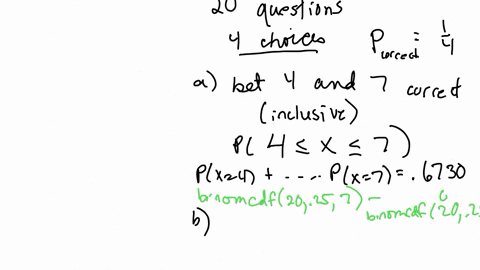 20 questions
4 choices P correct = 1/4
a) bet 4 and 7 correct
(inclusive)
P( 4 ≤ x ≤ 7 )
P(x=4) + ---- P(x=7) = .6730
binomcdf(20, .25, 7) - binomcdf(20, .2
b)